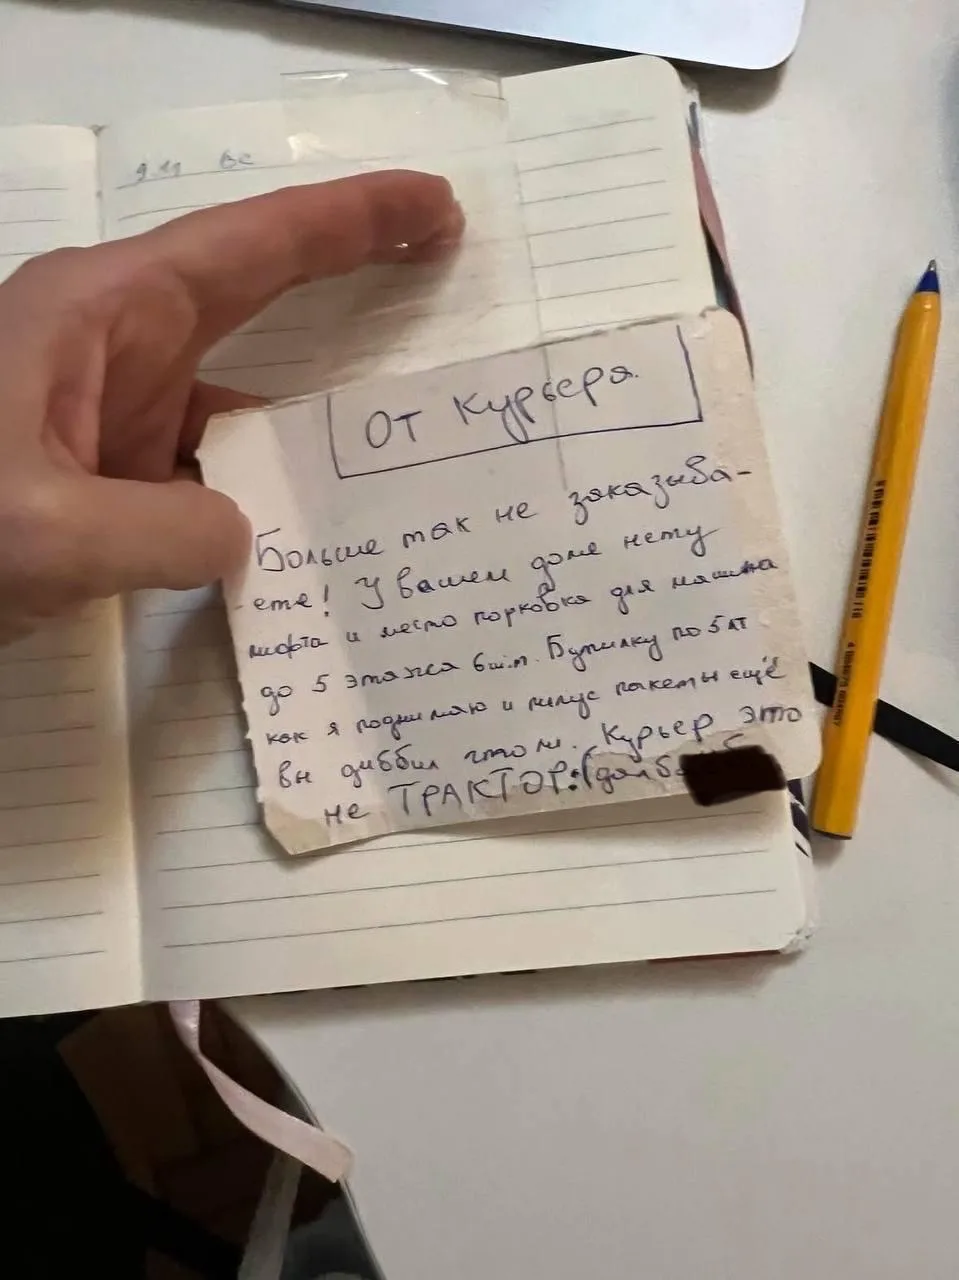 9.11 Вс
От Курьера.
Больше так не заказыва-
-ете! У вашем доме нету
лифта и место порковка для машина
до 5 этажа 6 шт. Бутилку по 5 лт
как я поднимаю и плюс пакеты ещё
вы диббил что ли. Курьер это
не ТРАКТОР:(